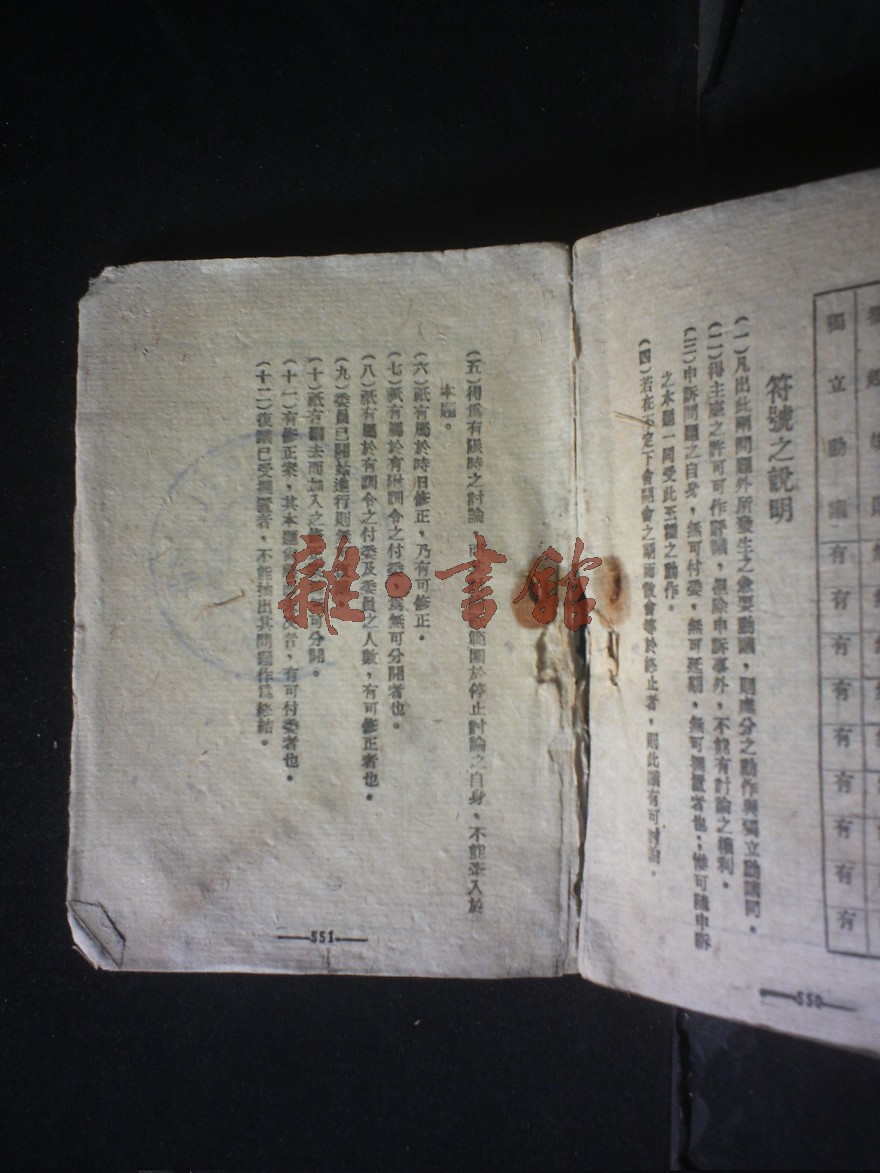 獨立動議 有有有有有有有有有
符號之說明
(一)凡出此兩問題外所發生之急要動議,則處分之動作與獨立動議同。
(二)得主座之許可可作評議,但除申訴事外,不能有討論之權利。
(三)申訴問題之自身,無可付委,無可延期,無可擱置者也;惟可隨申訴
之本題一同受此三種之動作。
(四)若在不定下會開會之期而散會等於終止者,則此議有可討論。
—550—
(五)得爲有限時之討論,範圍於停止討論之自身,不能牽入於
本題。
(六)祇有屬於時日修正,乃有可修正。
(七)祇有屬於有附訓令之付委,爲無可分開者也。
(八)祇有屬於有訓令之付委及委員之人數,有可修正者也。
(九)委員已開始進行則無可
(十)祇有刪去而加入之可分開。
(十一)有修正案,其本題者,有可付委者也。
(十二)復議已受擱置者,不能抽出其問題作爲終結。
—551—
雜·書館